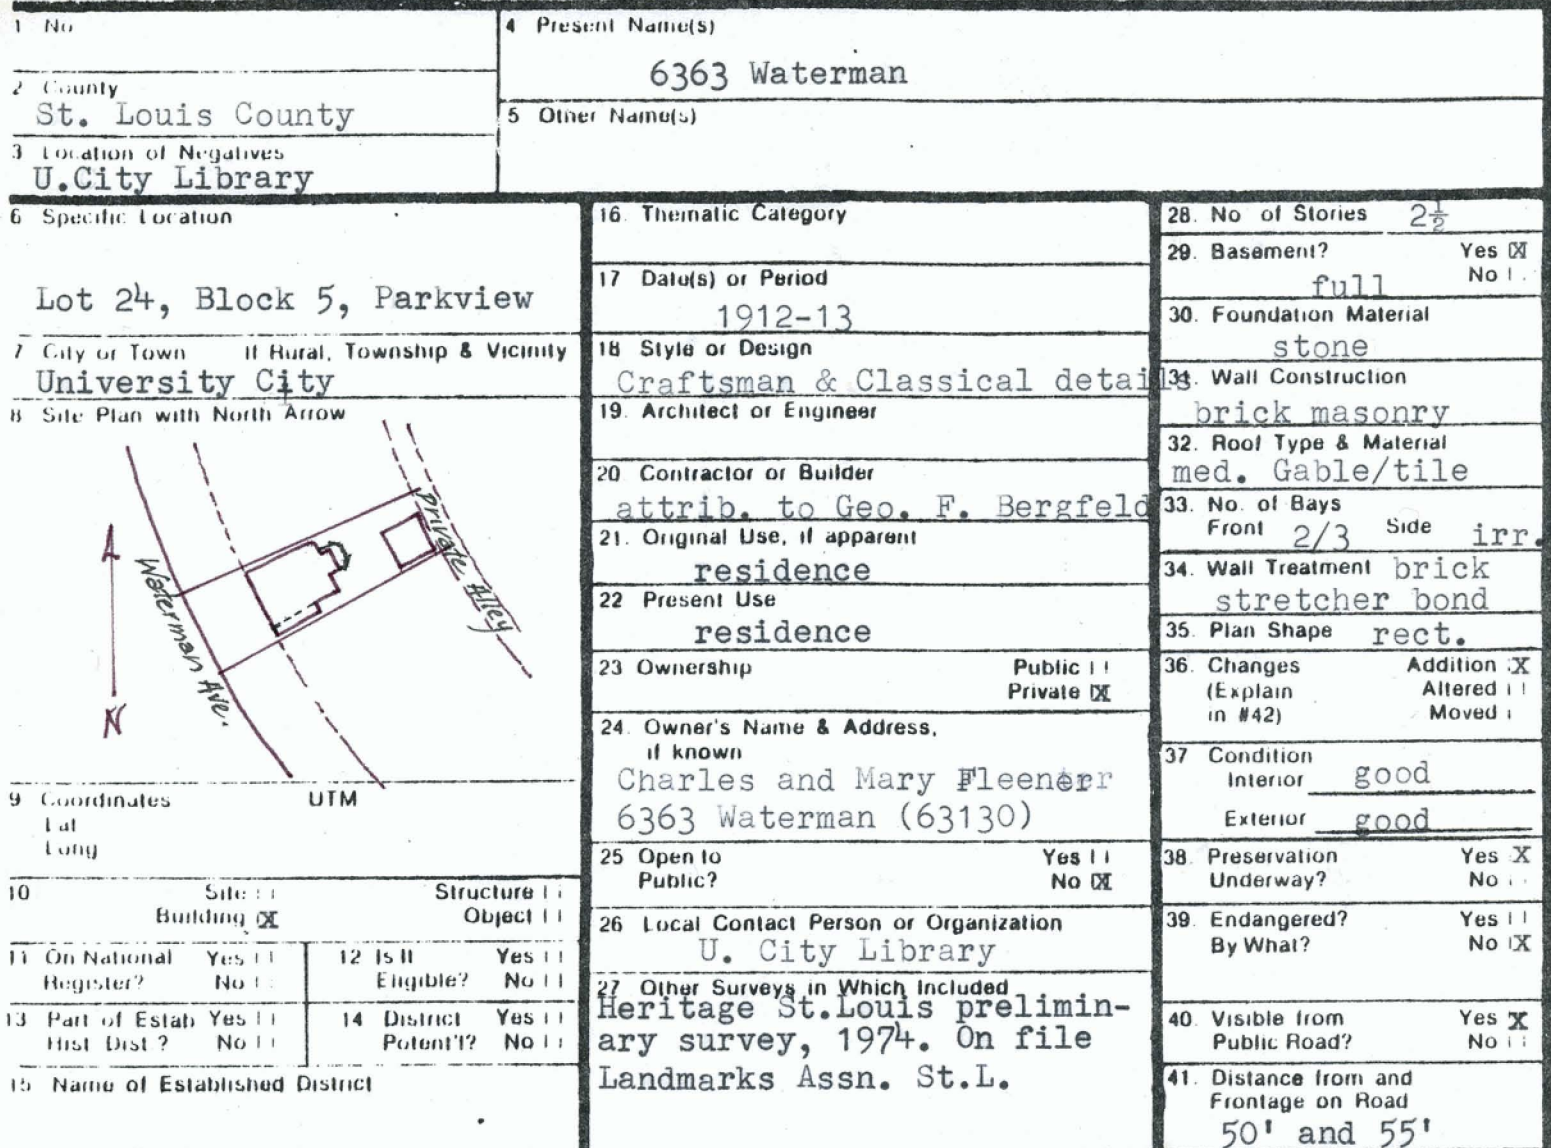 1 No
4 Present Name(s)
6363 Waterman
2 County
St. Louis County
5 Other Name(s)
3 Location of Negatives
U.City Library
6 Specific Location
Lot 24, Block 5, Parkview
7 City or Town If Rural, Township & Vicinity
University City
8 Site Plan with North Arrow
Waterman Ave.
Private Alley
N
9 Coordinates UTM
Lat
Long
10 Site Structure
Building X Object
11 On National Register? Yes No
12 Is It Eligible? Yes No
13 Part of Estab Hist Dist ? Yes No
14 District Potent'l? Yes No
15 Name of Established District
16. Thematic Category
17 Date(s) or Period
1912-13
18 Style or Design
Craftsman & Classical details
19. Architect or Engineer
20 Contractor or Builder
attrib. to Geo. F. Bergfeld
21. Original Use, if apparent
residence
22 Present Use
residence
23 Ownership Public
Private X
24. Owner's Name & Address,
if known
Charles and Mary
6363 Waterman (63130)
25 Open to Yes
Public? No X
26 Local Contact Person or Organization
U. City Library
27 Other Surveys in Which Included
Heritage St.Louis prelimin-
ary survey, 1974. On file
Landmarks Assn. St.L.
28. No of Stories 2½
29. Basement? Yes X
full No
30. Foundation Material
stone
31. Wall Construction
brick masonry
32. Roof Type & Material
med. Gable/tile
33. No. of Bays
Front 2/3 Side irr.
34. Wall Treatment brick
stretcher bond
35. Plan Shape rect.
36. Changes Addition X
(Explain Altered
in #42) Moved
37 Condition
Interior good
Exterior good
38. Preservation Yes X
Underway? No
39. Endangered? Yes
By What? No X
40. Visible from Yes X
Public Road? No
41. Distance from and
Frontage on Road
50' and 55'